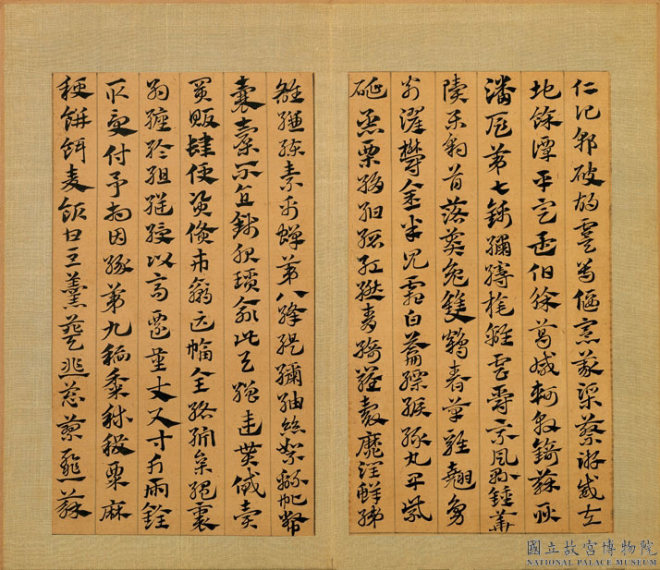 仁記郭破胡虞尊偃憲義渠蔡游威左
地餘譚平定孟伯徐葛咸軻敦錡蘇耿
潘扈第七錦繡縵旄離雲爵乘風縣鍾華
樂豹首落莫兔雙鶴春草雞翹鳧
翁濯鬱金半見霜白縹綟綠丸草紫
烝栗絹紺縉紅繎青綺羅縠靡潤鮮綈
縑練素帛蟬第八絳緹紬絲絮
囊橐不直錢服瑣緰此與繒連貰貸賣
買販肆便資貨市贏匹幅全絡紵枲縕裹
約纏綸組縌綬以高遷量丈尺寸斤兩銓
取受付予相因緣第九稻黍秫稷粟麻
粳餅餌麦飯甘豆羹葵韭葱蓼薤蘇
國立故宮博物院
NATIONAL PALACE MUSEUM